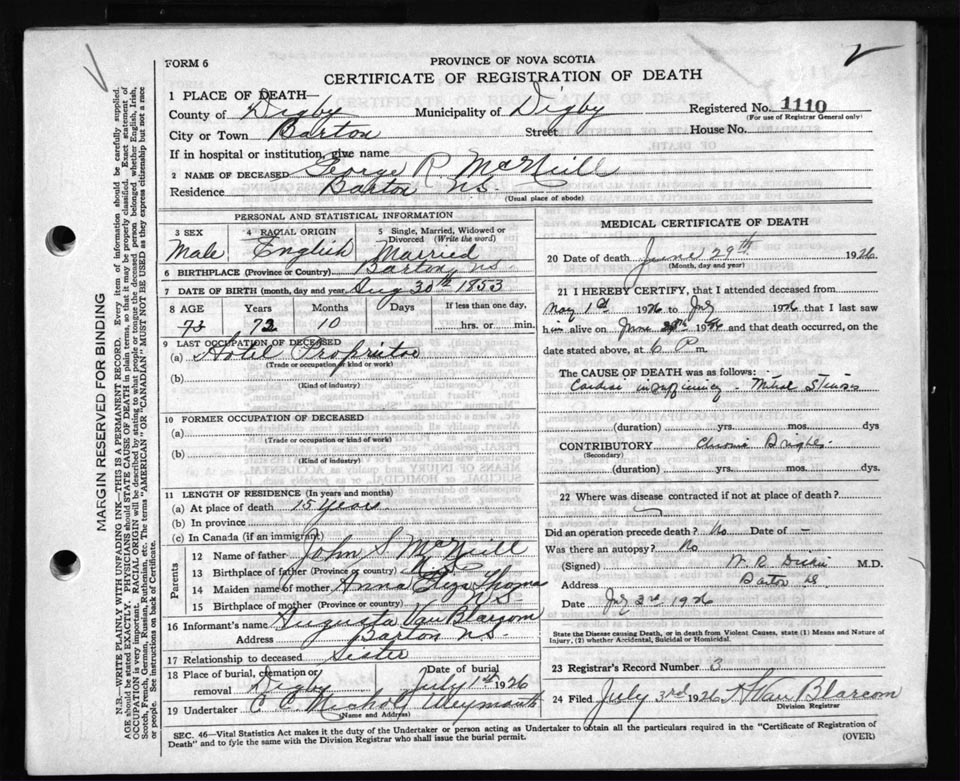 FORM 6
PROVINCE OF NOVA SCOTIA
CERTIFICATE OF REGISTRATION OF DEATH
1 PLACE OF DEATH—
County of Digby Municipality of Digby Registered No. 1110
(For use of Registrar General only)
City or Town Barton Street House No.
If in hospital or institution, give name
2 NAME OF DECEASED George R. McNeill
Residence Barton N.S.
(Usual place of abode)
PERSONAL AND STATISTICAL INFORMATION
3 SEX 4 RACIAL ORIGIN 5 Single, Married, Widowed or Divorced (Write the word)
Male English Married
6 BIRTHPLACE (Province or Country) Barton, N.S.
7 DATE OF BIRTH (month, day and year) Aug 30th 1853
8 AGE Years Months Days If less than one day,
73 72 10 hrs. or min.
9 LAST OCCUPATION OF DECEASED
(a) Hotel Propritor
(Trade or occupation or kind or work)
(b)
(Kind of industry)
10 FORMER OCCUPATION OF DECEASED
(a)
(Trade or occupation or kind of work)
(b)
(Kind of industry)
11 LENGTH OF RESIDENCE (In years and months)
(a) At place of death 15 years
(b) In province
(c) In Canada (if an immigrant)
Parents
12 Name of father John S McNeill
13 Birthplace of father (Province or country) N.S.
14 Maiden name of mother Anna Eliza Thomas
15 Birthplace of mother (Province or country) N S
16 Informant's name Augusta Van Blarcom
Address Barton N.S.
17 Relationship to deceased Sister
18 Place of burial, cremation or removal Digby Date of burial July 1st 1926
19 Undertaker Weymouth
(Name and Address)
MEDICAL CERTIFICATE OF DEATH
20 Date of death June 29th 1926
(Month, day and year)
21 I HEREBY CERTIFY, that I attended deceased from
May 1st 1926 to July 1926 that I last saw
him alive on June 29th 1926 and that death occurred, on the
date stated above, at 6 P m.
The CAUSE OF DEATH was as follows:
Cardiac insufficiency - Mitral Stenosis
(duration) yrs. mos. dys
CONTRIBUTORY Chronic Brights
(Secondary)
(duration) yrs. mos. dys.
22 Where was disease contracted if not at place of death?
Did an operation precede death? No Date of —
Was there an autopsy? No
(Signed) W. R. M.D.
Address Barton NS
Date July 3rd 1926
State the Disease causing Death, or in death from Violent Causes, state (1) Means and Nature of
Injury, (2) whether Accidental, Suicidal or Homicidal.
23 Registrar's Record Number 3
24 Filed July 3rd 1926 H Van Blarcom
Division Registrar
SEC. 46—Vital Statistics Act makes it the duty of the Undertaker or person acting as Undertaker to obtain all the particulars required in the "Certificate of Registration of
Death" and to fyle the same with the Division Registrar who shall issue the burial permit. (OVER)
MARGIN RESERVED FOR BINDING
N.B.—WRITE PLAINLY WITH UNFADING INK—THIS IS A PERMANENT RECORD. Every item of information should be carefully supplied.
AGE should be stated EXACTLY. PHYSICIANS should STATE CAUSE OF DEATH in plain terms, so that it may be properly classified. Exact statement of
OCCUPATION is very important. RACIAL ORIGIN will be described by stating to what people or tongue the deceased person belonged whether English, Irish,
Scotch, French, German, Russian, Ruthenian, etc. The terms "AMERICAN" OR "CANADIAN" MUST NOT BE USED as they express citizenship but not a race
or people. See instructions on back of Certificate.